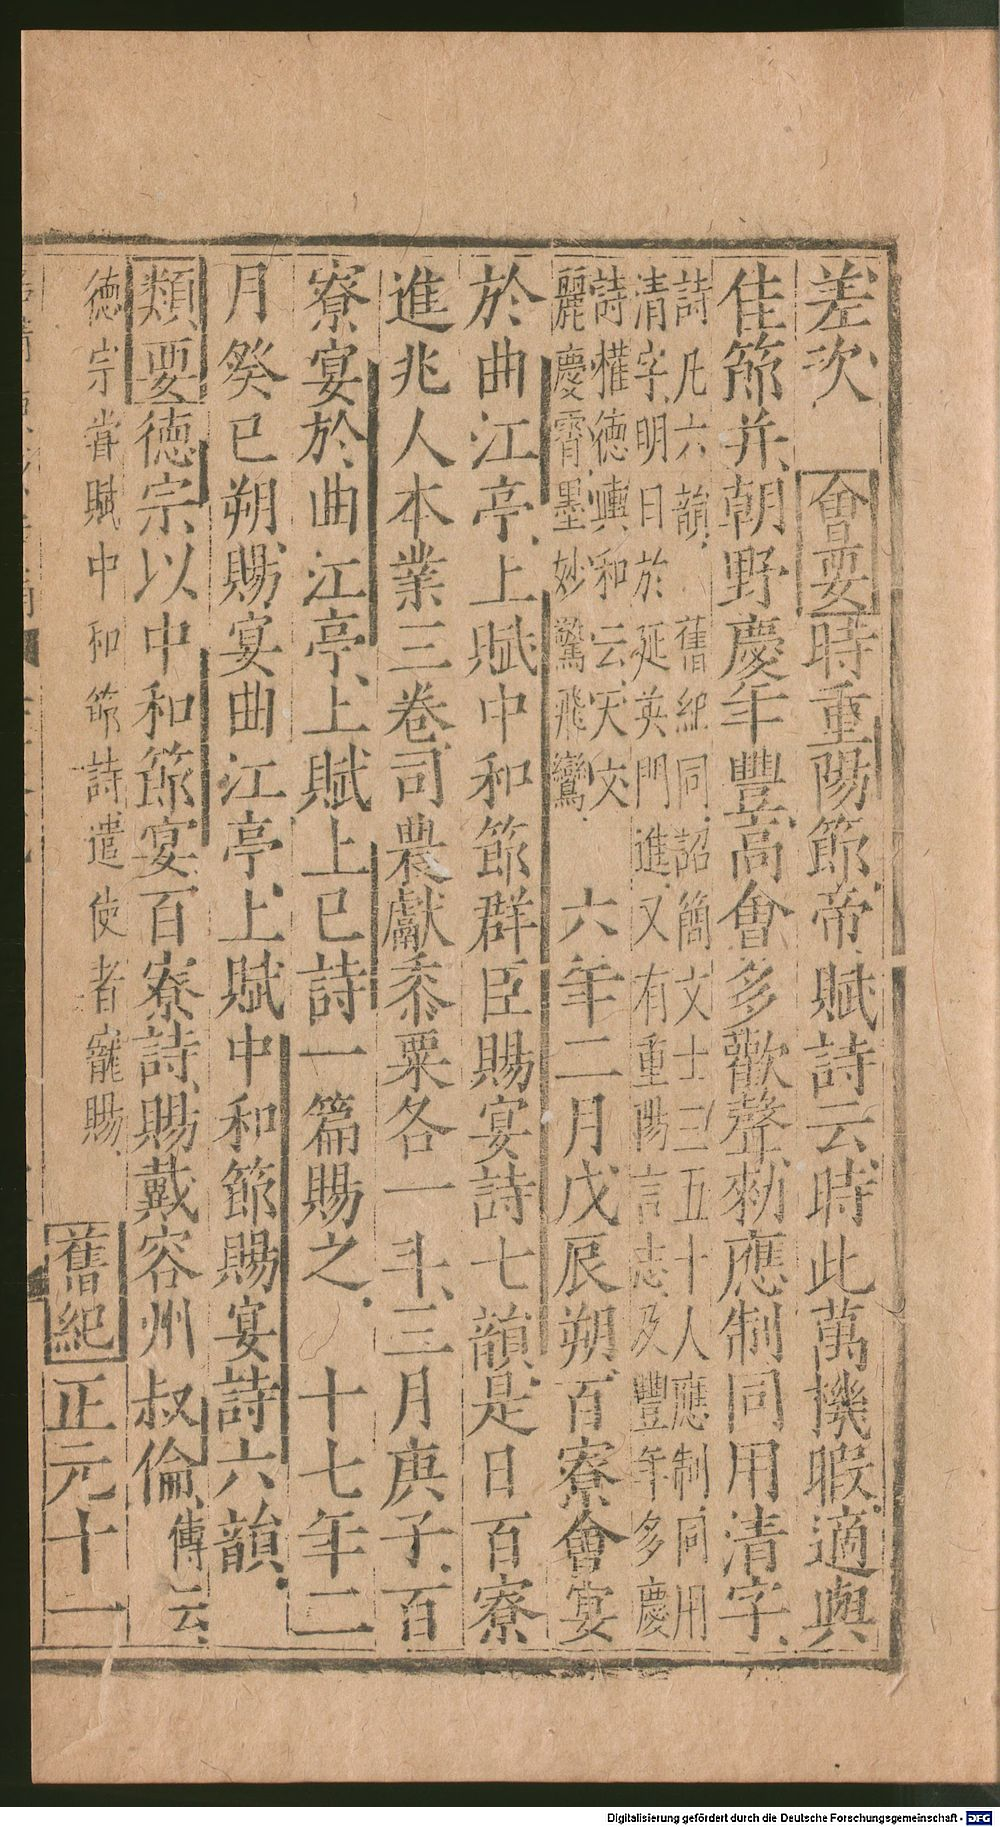 差次　會要時重陽節帝賦詩云時此萬機暇適與
佳節并朝野慶年豐高會多歡聲勑應制同用清字
詩凡六韻　舊紀同詔簡文士三五十人應制同用
清字明日於延英門進又有重陽言志及豐年多慶
詩權德輿和云天文
麗慶霄墨妙驚飛鸞　六年二月戊辰朔百寮會宴
於曲江亭上賦中和節群臣賜宴詩七韻是日百寮
進兆人本業三卷司農獻黍粟各一斗三月庚子百
寮宴於曲江亭上賦上巳詩一篇賜之　十七年二
月癸巳朔賜宴曲江亭上賦中和節賜宴詩六韻
類要德宗以中和節宴百寮詩賜戴容州叔倫傳云
德宗甞賦中和節詩遣使者寵賜　舊紀正元十一
Digitalisierung gefördert durch die Deutsche Forschungsgemeinschaft - DFG